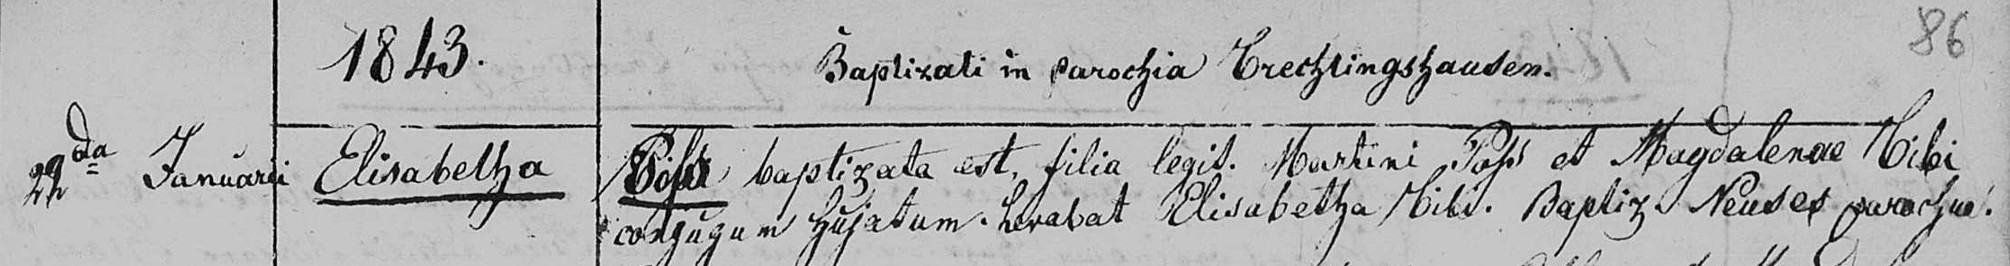 86
1843. Baptizati in parochia Trechtingshausen.
22da Januarii Elisabetha baptizata est, filia legit. Martini Pass et Magdalenae Nibi
conjugum hujatum. Levabat Elisabetha Nibi. Baptiz. Neuses parochus.